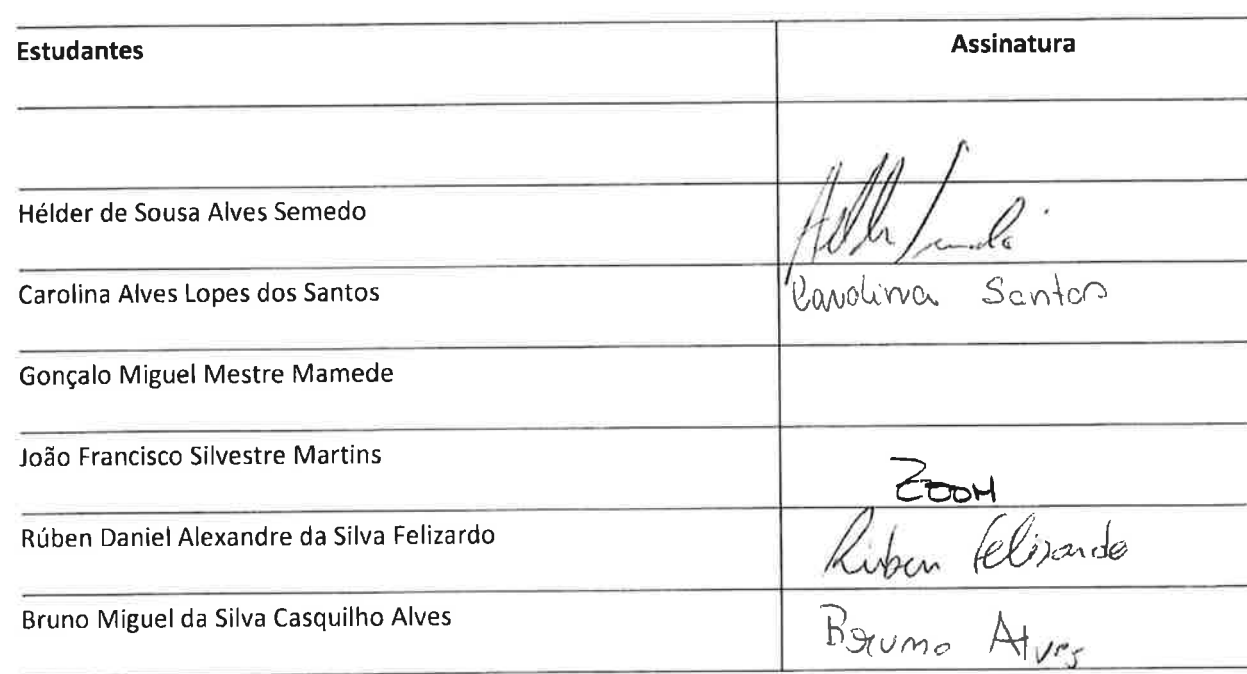 Estudantes Assinatura
Hélder de Sousa Alves Semedo
Carolina Alves Lopes dos Santos Carolina Santos
Gonçalo Miguel Mestre Mamede
João Francisco Silvestre Martins ZOOM
Rúben Daniel Alexandre da Silva Felizardo Rúben Felizardo
Bruno Miguel da Silva Casquilho Alves Bruno Alves